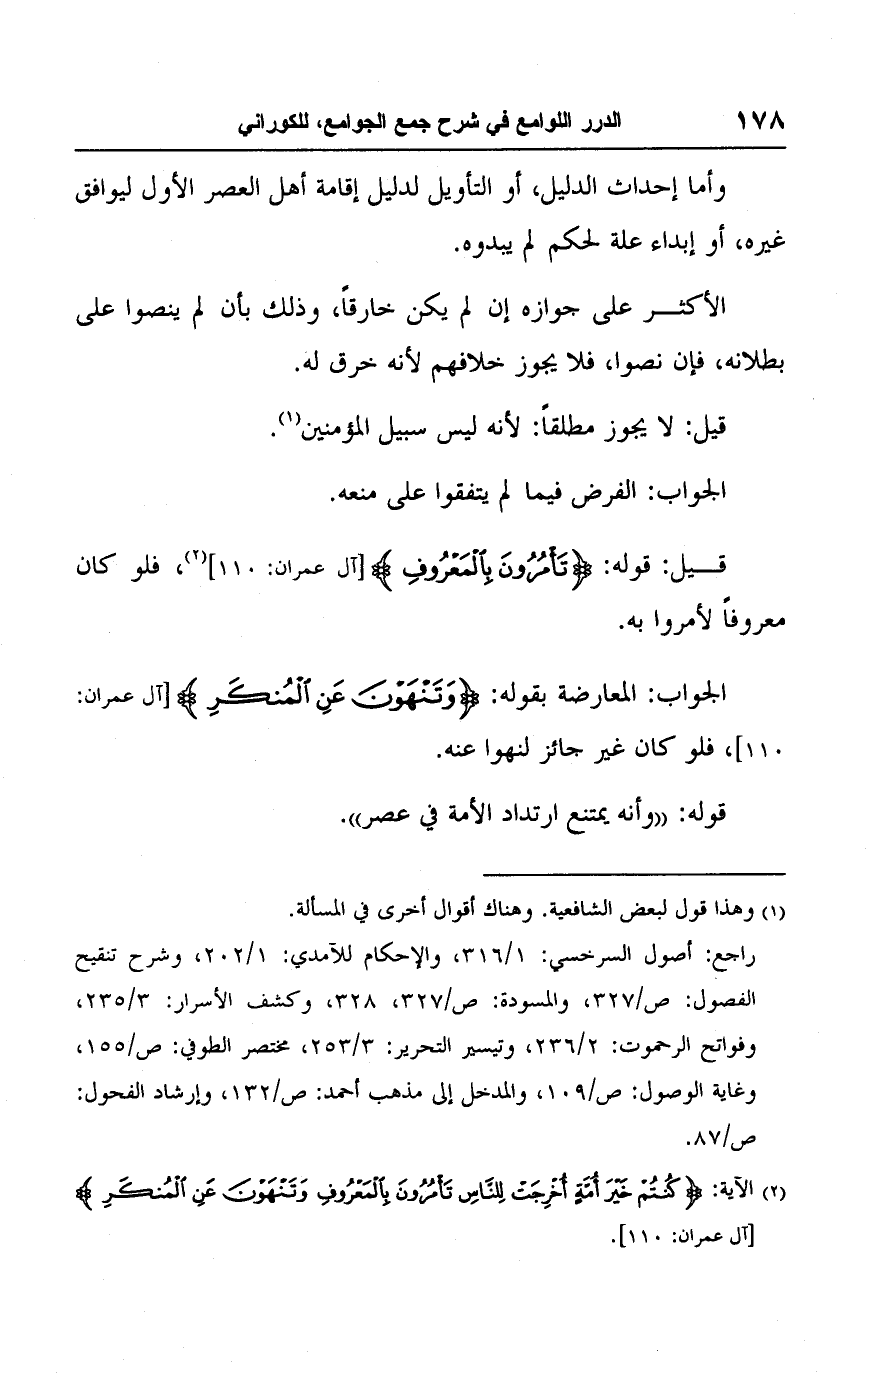 ١٧٨ الدرر اللوامع في شرح جمع الجوامع، للكوراني
وأما إحداث الدليل، أو التأويل لدليل إقامة أهل العصر الأول ليوافق
غيره، أو إبداء علة لحكم لم يبدوه.
الأكثـــر على جوازه إن لم يكن خارقاً، وذلك بأن لم ينصوا على
بطلانه، فإن نصوا، فلا يجوز خلافهم لأنه خرق له.
قيل: لا يجوز مطلقاً: لأنه ليس سبيل المؤمنين(١).
الجواب: الفرض فيما لم يتفقوا على منعه.
قـــيل: قوله: ﴿ تَأْمُرُونَ بِٱلْمَعْرُوفِ ﴾ [آل عمران: ١١٠](٢)، فلو كان
معروفاً لأمروا به.
الجواب: المعارضة بقوله: ﴿ وَتَنْهَوْنَ عَنِ ٱلْمُنكَرِ ﴾ [آل عمران:
١١٠]، فلو كان غير جائز لنهوا عنه.
قوله: ((وأنه يمتنع ارتداد الأمة في عصر)).
(١) وهذا قول لبعض الشافعية. وهناك أقوال أخرى في المسألة.
راجع: أصول السرخسي: ٣١٦/١، والإحكام للآمدي: ٢٠٢/١، وشرح تنقيح
الفصول: ص/٣٢٧، والمسودة: ص/٣٢٧، ٣٢٨، وكشف الأسرار: ٢٣٥/٣،
وفواتح الرحموت: ٢٣٦/٢، وتيسير التحرير: ٢٥٣/٣، مختصر الطوفي: ص/١٥٥،
وغاية الوصول: ص/١٠٩، والمدخل إلى مذهب أحمد: ص/١٣٢، وإرشاد الفحول:
ص/٨٧.
(٢) الآية: ﴿ كُنتُمْ خَيْرَ أُمَّةٍ أُخْرِجَتْ لِلنَّاسِ تَأْمُرُونَ بِٱلْمَعْرُوفِ وَتَنْهَوْنَ عَنِ ٱلْمُنكَرِ ﴾
[آل عمران: ١١٠].